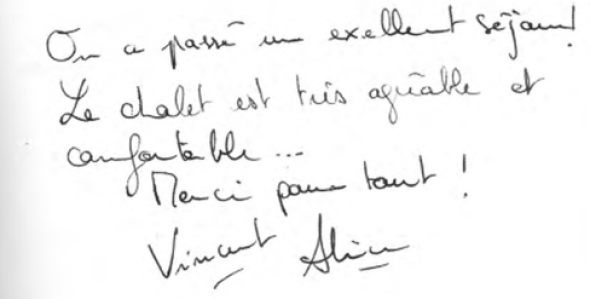 On a passé un exellent séjour!
Le chalet est très agréable et
confortable ...
Merci pour tout !
Vincent Alice